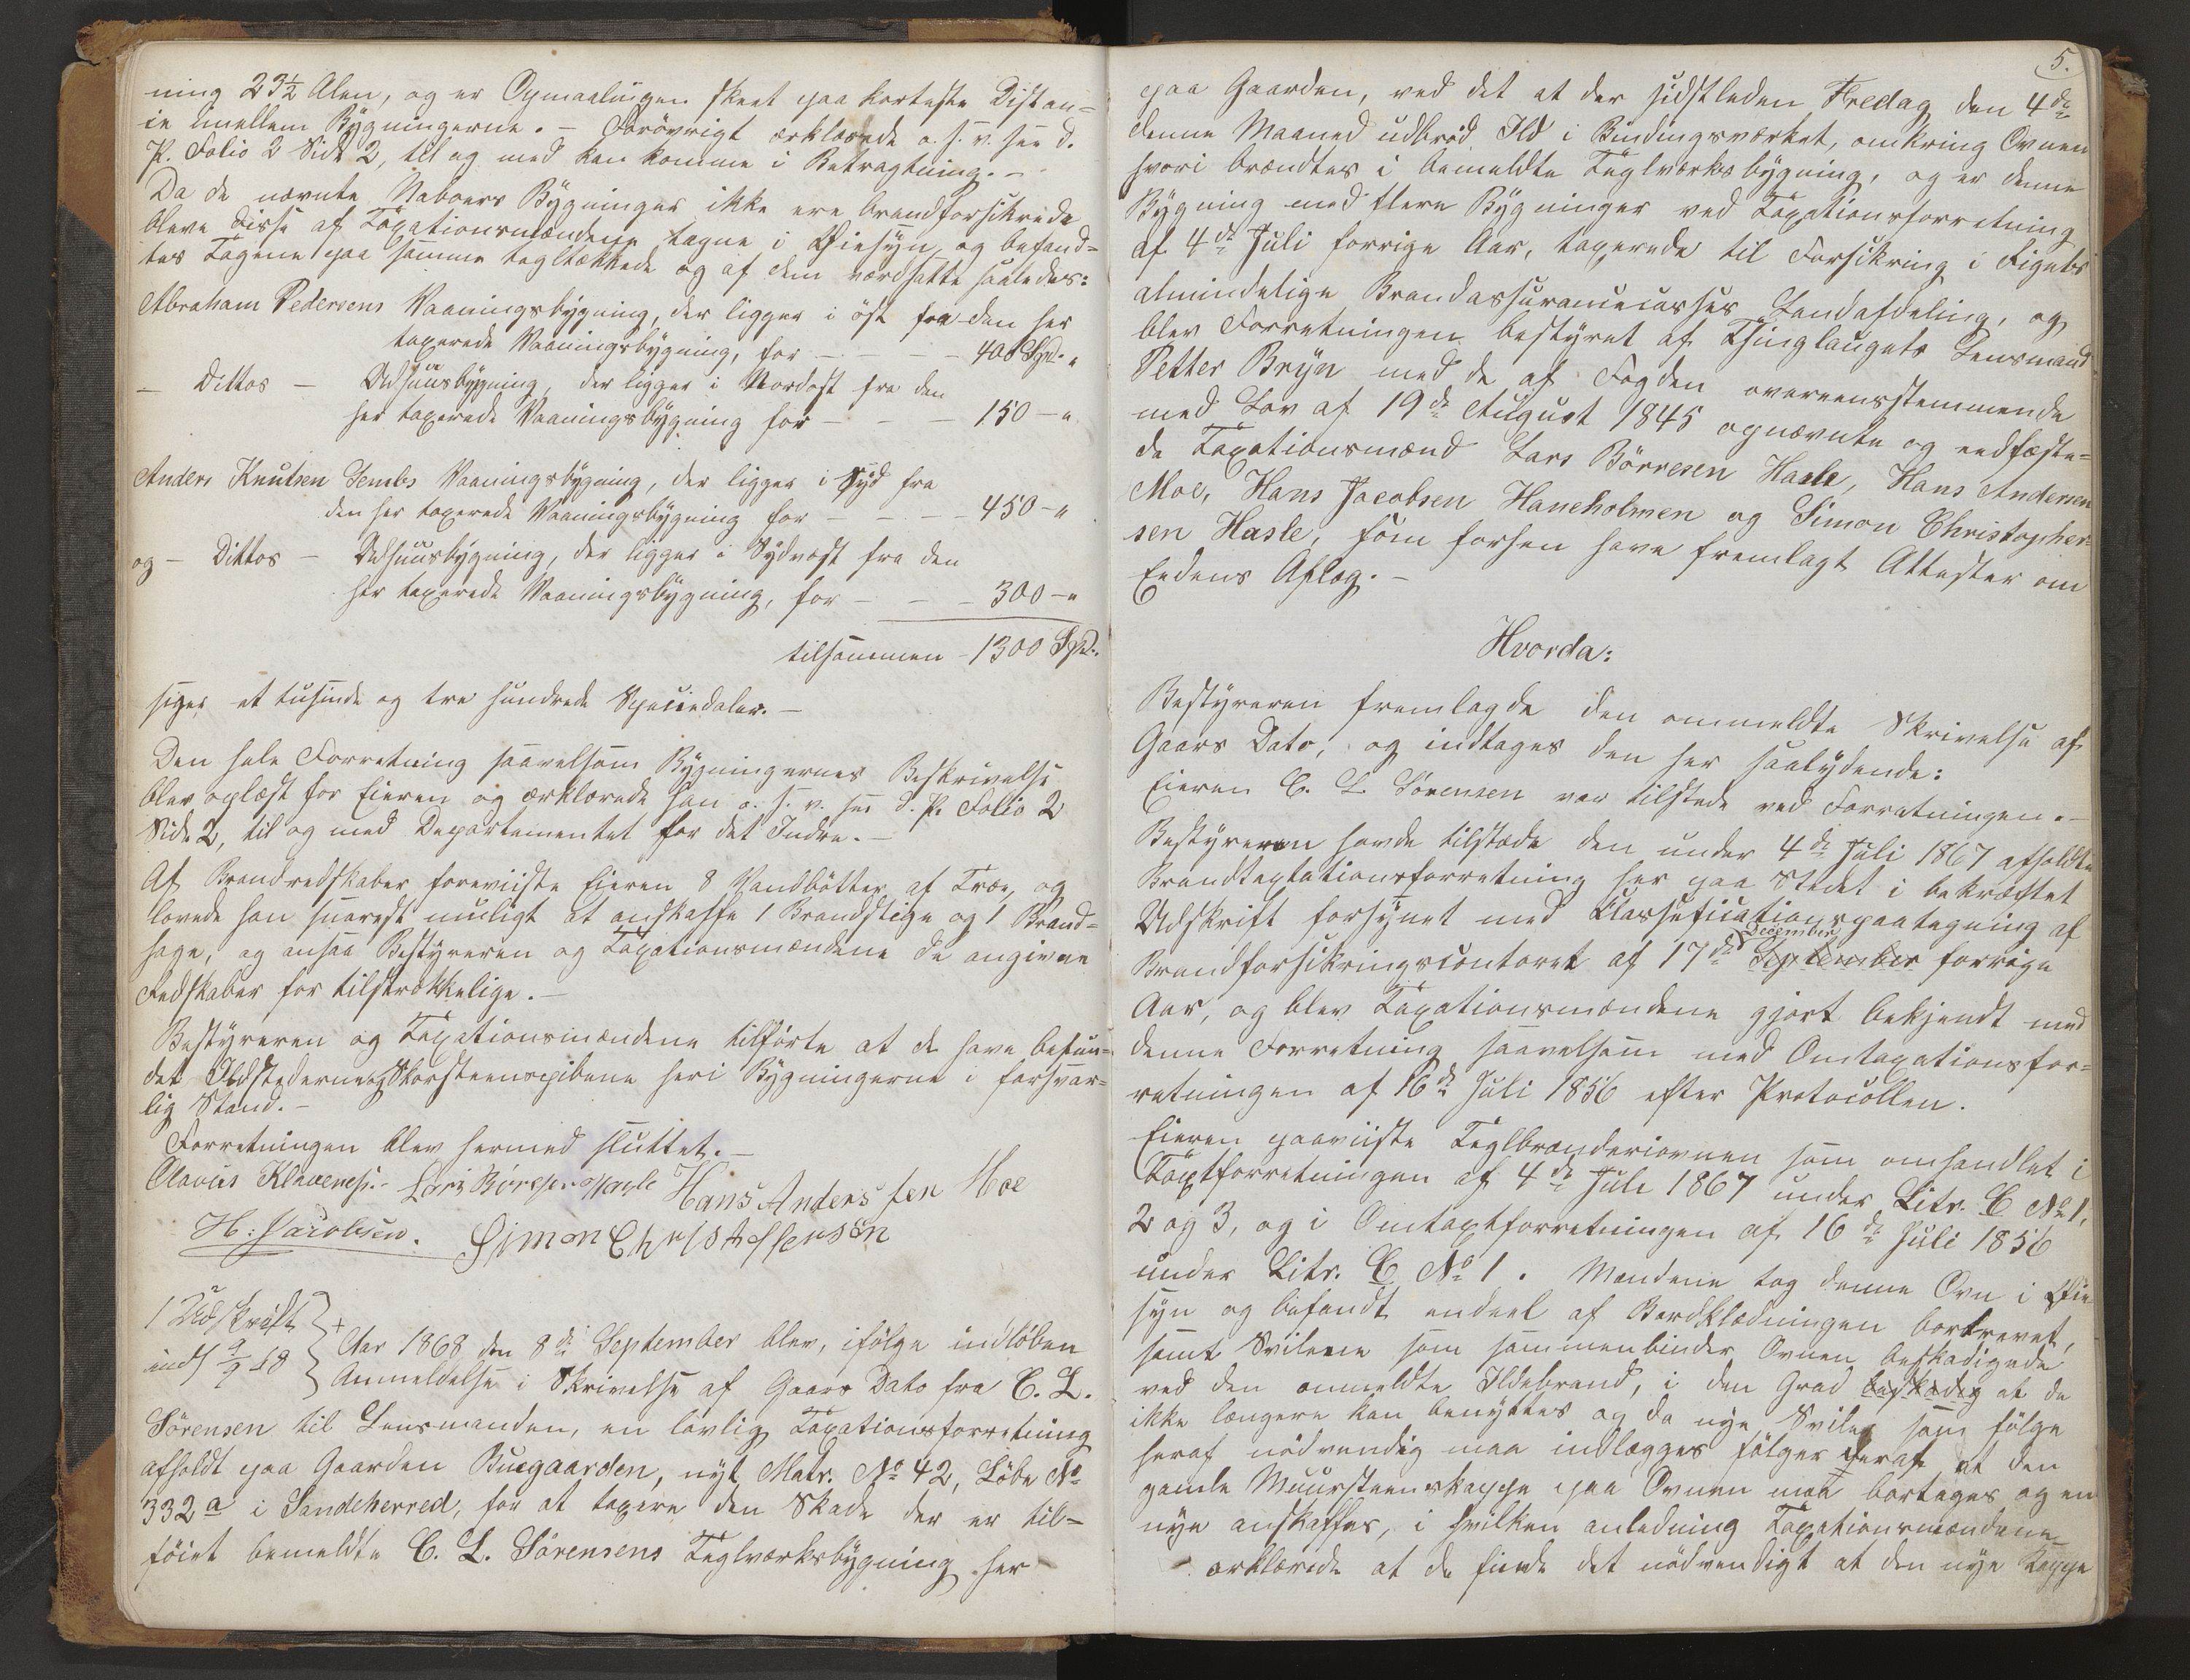 ning 23½ Alen, og er Opmaalingen skeet paa korteste Distan-
ce imellem Bygningerne. – Forövrigt erklærede o. s. v. see d.
P. Folio 2 Side 2, til og med kan komme i Betragtning. –
Da de nævnte Naboers Bygninger ikke ere brandforsikrede
bleve disse af Taxationsmændene tagne i Øiesyn og befand-
tes Tagene paa samme tegltækkede og af dem værdsatte saaledes:
Abraham Pedersens Vaaningsbygning, der ligger i öst fra den her
taxerede Vaaningsbygning, for – – – 400 Spd. "
– Dittos – Udhuusbygning, der ligger i Nordost fra den
her taxerede Vaaningsbygning for – – – 150 – "
Anders Knutsen Sembs Vaaningsbygning, der ligger i Syd fra
den her taxerede Vaaningsbygning for – – – 450 – "
og – Dittos – Udhuusbygning, der ligger i Sydvest fra den
her taxerede Vaaningsbygning, for – – – 300 – "
tilsammen – 1300 Spd.
siger et tusinde og tre hundrede Speciedaler. –
Den hele Forretning saavelsom Bygningernes Beskrivelse
blev oplæst for Eieren og erklærede han o. s. v. see d. P. Folio 2
Side 2, til og med Departementet for det Indre. –
Af Brandredskaber foreviiste Eieren 8 Vandbötter af Træ, og
lovede han snarest muligt at anskaffe 1 Brandstige og 1 Brand-
hage, og ansaa Bestyreren og Taxationsmændene de angivne
Redskaber for tilstrækkelige. –
Bestyreren og Taxationsmændene tilförte at de have befun-
det Ildstederne og Skorsteenspiberne heri Bygningerne i forsvar-
lig Stand. –
Forretningen blev hermed sluttet. –
Olavus Klavenes. – Lars Börresen Hasle Hans Andersen Moe
H: Jacobsen. Simon Christoffersen
1 Udskrift
inds 9/9 68
+
Aar 1868 den 8de September blev, ifölge indlöben
Anmeldelse i Skrivelse af Gaars Dato fra C. L.
Sörensen til Lensmanden, en lovlig Taxationsforretning
afholdt paa Gaarden Buegaarden, nyt Matr. No 42, Löbe No
332a i Sandeherred, for at taxere den Skade der er til-
föiet bemeldte C. L. Sörensens Teglværksbygning her
5.
paa Gaarden, ved det at der sidstleden Fredag den 4de
denne Maaned udbröd Ild i Bindingsværket, omkring Ovnen
hvori brændtes i bemeldte Teglværksbygning, og er denne
Bygning med flere Bygninger ved Taxationsforretning
af 4de Juli forrige Aar, taxerede til Forsikring i Rigets
almindelige Brandassurancecasses Landafdeling, og
blev Forretningen bestyret af Thinglaugets Lensmand
Petter Bryn med de af Fogden overeensstemmende
med Lov af 19de August 1845 opnævnte og eedfæste-
de Taxationsmænd Lars Börresen Hasle, Hans Andersen
Moe, Hans Jacobsen Haneholmen og Simon Christopher-
sen Hasle, som forhen have fremlagt Attester om
Eedens Aflæg. –
Hvorda:
Bestyreren fremlagde den anmeldte Skrivelse af
Gaars Dato, og indtages den her saalydende:
Eieren C. L. Sörensen var tilstede ved Forretningen. –
Bestyreren havde tilstede den under 4de Juli 1867 afholdte
Brandtaxtationsforretning her paa Stedet i bekræftet
Udskrift forsynet med Classificationspaategning af
Brandforsikringscontoret af 17de September December forrige
Aar, og blev Taxationsmændene gjort bekjendt med
denne Forretning saavelsom med Omtaxationsfor-
retningen af 16de Juli 1856 efter Protocollen.
Eieren paaviiste Teglbrænderiovnen som omhandlet i
Taxtforretningen af 4de Juli 1867 under Litr. C No 1,
2 og 3, og i Omtaxtforretningen af 16de Juli 1856
under Litr. C No 1. Mændene tog denne Ovn i Øie-
syn og befandt endeel af Bordklædningen bortrevet,
samt Svilerne som sammenbinder Ovnen beskadigede
ved den anmeldte Ildebrand, i den Grad beskadig at de
ikke længere kan benyttes og da nye Sviler som fölge
heraf nödvendig maa indlægges fölger deraf at den
gamle Muursteenskappe paa Ovnen maa bortages og en
nye anskaffes, i hvilken anledning Taxationsmændene
erklærede at de finde det nödvendigt at den nye Kappe